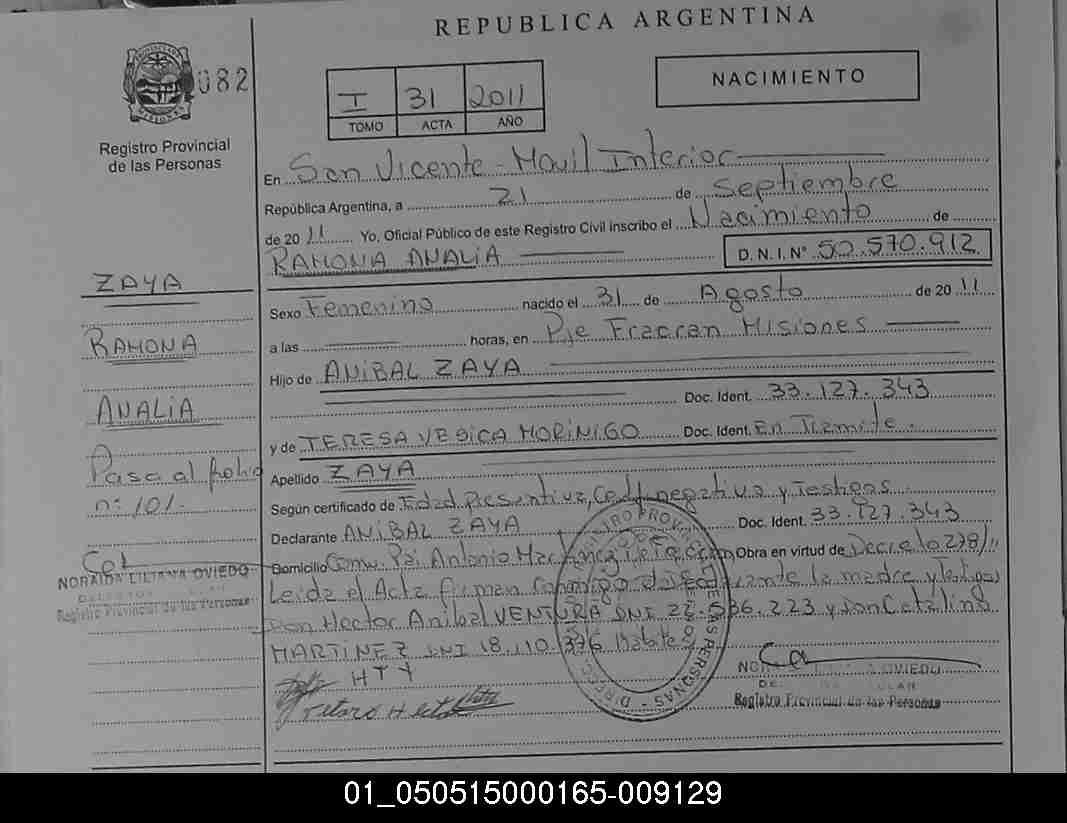 REPUBLICA ARGENTINA
082
I 31 2011
TOMO ACTA AÑO
NACIMIENTO
Registro Provincial
de las Personas
En San Vicente - Movil Interior
República Argentina, a 21 de Septiembre
de 2011 Yo, Oficial Público de este Registro Civil inscribo el Nacimiento de
RAMONA ANALIA D.N.I. N° 50.570.912
ZAYA
RAMONA
ANALIA
Pasa al folio
n: 101.
Sexo Femenino nacido el 31 de Agosto de 2011
a las horas, en Pje Fracran Misiones
Hijo de ANIBAL ZAYA
Doc. Ident. 33.127.343
y de TERESA YESICA MORINIGO Doc. Ident. En Tramite.
Apellido ZAYA
Según certificado de Edad Presuntiva, Cert negativa y Testigos.
Declarante ANIBAL ZAYA Doc. Ident. 33.127.343
Domicilio Comu Pai Antonio Obra en virtud de Decreto 278/11
Leida el Acta firman Conmigo la madre y testigos
Don Hector Anibal VENTURA DNI 22.536.223 y Don Catalino
MARTINEZ DNI 18.110.376
HTY
NORAIDA LILIANA OVIEDO
Registro Provincial de las Personas
OVIEDO
Registro Provincial de las Personas
01_050515000165-009129